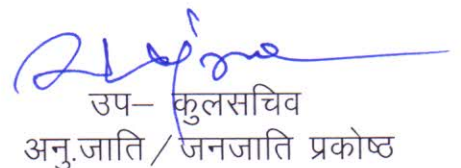 उप– कुलसचिव
अनु.जाति/जनजाति प्रकोष्ठ